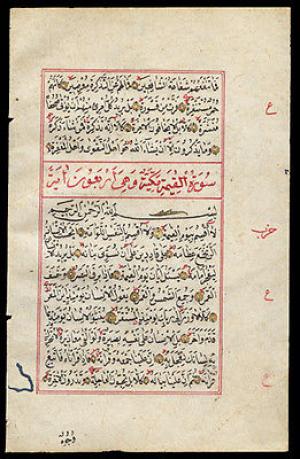 فَمَا تَنْفَعُهُمْ شَفَاعَةُ الشَّافِعِينَ فَمَا لَهُمْ عَنِ التَّذْكِرَةِ مُعْرِضِينَ كَأَنَّهُمْ
حُمُرٌ مُسْتَنْفِرَةٌ فَرَّتْ مِنْ قَسْوَرَةٍ بَلْ يُرِيدُ كُلُّ امْرِئٍ مِنْهُمْ أَنْ يُؤْتَى صُحُفًا
مُنَشَّرَةً كَلَّا بَلْ لَا يَخَافُونَ الْآخِرَةَ كَلَّا إِنَّهُ تَذْكِرَةٌ فَمَنْ شَاءَ ذَكَرَهُ
وَمَا يَذْكُرُونَ إِلَّا أَنْ يَشَاءَ اللَّهُ هُوَ أَهْلُ التَّقْوَى وَأَهْلُ الْمَغْفِرَةِ
ع
سورة القيمة مكية وهى اربعون اية
بِسْمِ اللَّهِ الرَّحْمَنِ الرَّحِيمِ
لَا أُقْسِمُ بِيَوْمِ الْقِيمَةِ وَلَا أُقْسِمُ بِالنَّفْسِ اللَّوَّامَةِ أَيَحْسَبُ الْإِنْسَانُ
حزب
أَلَّنْ نَجْمَعَ عِظَامَهُ بَلَى قَادِرِينَ عَلَى أَنْ نُسَوِّيَ بَنَانَهُ بَلْ يُرِيدُ الْإِنْسَانُ
لِيَفْجُرَ أَمَامَهُ يَسْئَلُ أَيَّانَ يَوْمُ الْقِيمَةِ فَإِذَا بَرِقَ الْبَصَرُ وَخَسَفَ
الْقَمَرُ وَجُمِعَ الشَّمْسُ وَالْقَمَرُ يَقُولُ الْإِنْسَانُ يَوْمَئِذٍ أَيْنَ الْمَفَرُّ
ع
كَلَّا لَا وَزَرَ إِلَى رَبِّكَ يَوْمَئِذٍ الْمُسْتَقَرُّ يُنَبَّؤُا الْإِنْسَانُ يَوْمَئِذٍ بِمَا
قَدَّمَ وَأَخَّرَ بَلِ الْإِنْسَانُ عَلَى نَفْسِهِ بَصِيرَةٌ وَلَوْ أَلْقَى مَعَاذِيرَهُ لَا تُحَرِّكْ
بِهِ لِسَانَكَ لِتَعْجَلَ بِهِ إِنَّ عَلَيْنَا جَمْعَهُ وَقُرْآنَهُ فَإِذَا قَرَأْنَاهُ فَاتَّبِعْ
قُرْآنَهُ ثُمَّ إِنَّ عَلَيْنَا بَيَانَهُ كَلَّا بَلْ تُحِبُّونَ الْعَاجِلَةَ وَتَذَرُونَ الْآخِرَةَ
وجوه